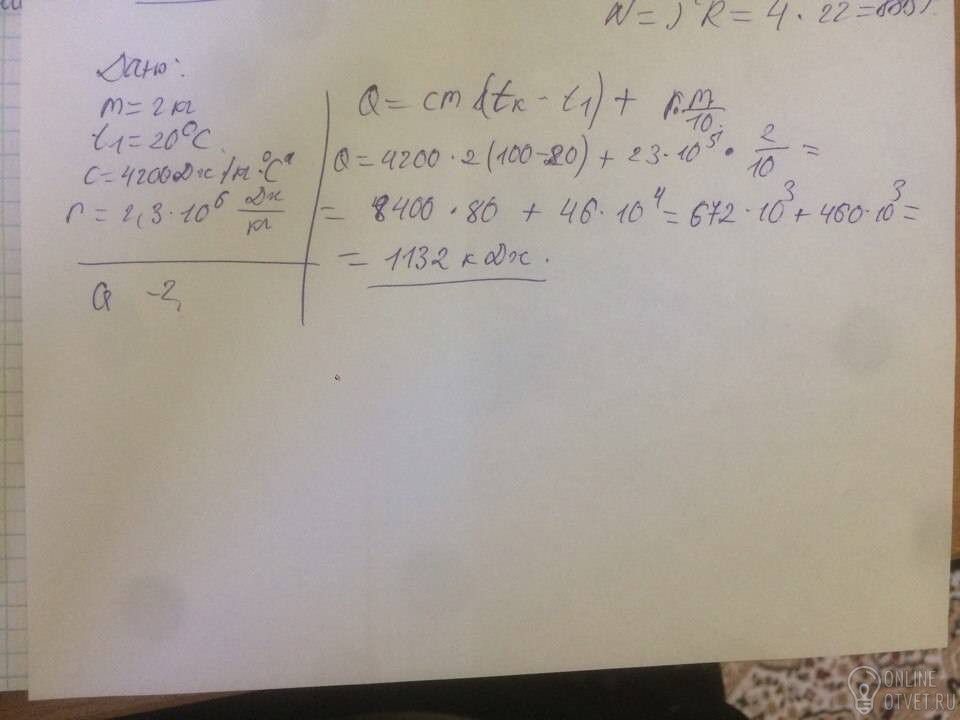 N = J² R = 4 · 22 = 88Вт.
Дано:
m = 2 кг
t1 = 20°C.
c = 4200 Дж/кг·°C
r = 2,3·10⁶ Дж/кг
Q – ?
Q = cm(tк – t1) + r·m/10;
Q = 4200·2(100–20) + 23·10⁵ · 2/10 =
= 8400·80 + 46·10⁴ = 672·10³ + 460·10³ =
= 1132 кДж.
ONLINE
OTVET.RU